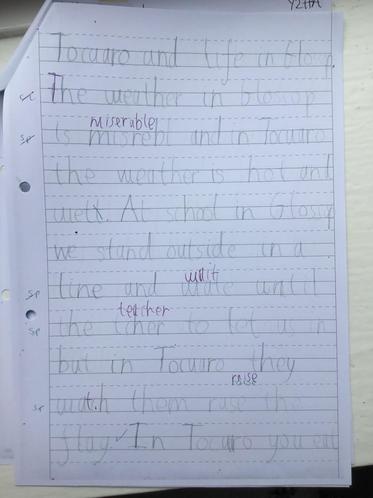 Y2HA
Tocuaro and life in Glosop.
The weather in Glossop
sp is misrebl miserable and in Tocuaro
the weather is hot and
wett. At school in Glosop
we stand outside in a
sp line and wate wait until
sp the tcher teacher to let us in
but in Tocuaro they
sp watch them rase raise the
flag. In Tocuaro you eat